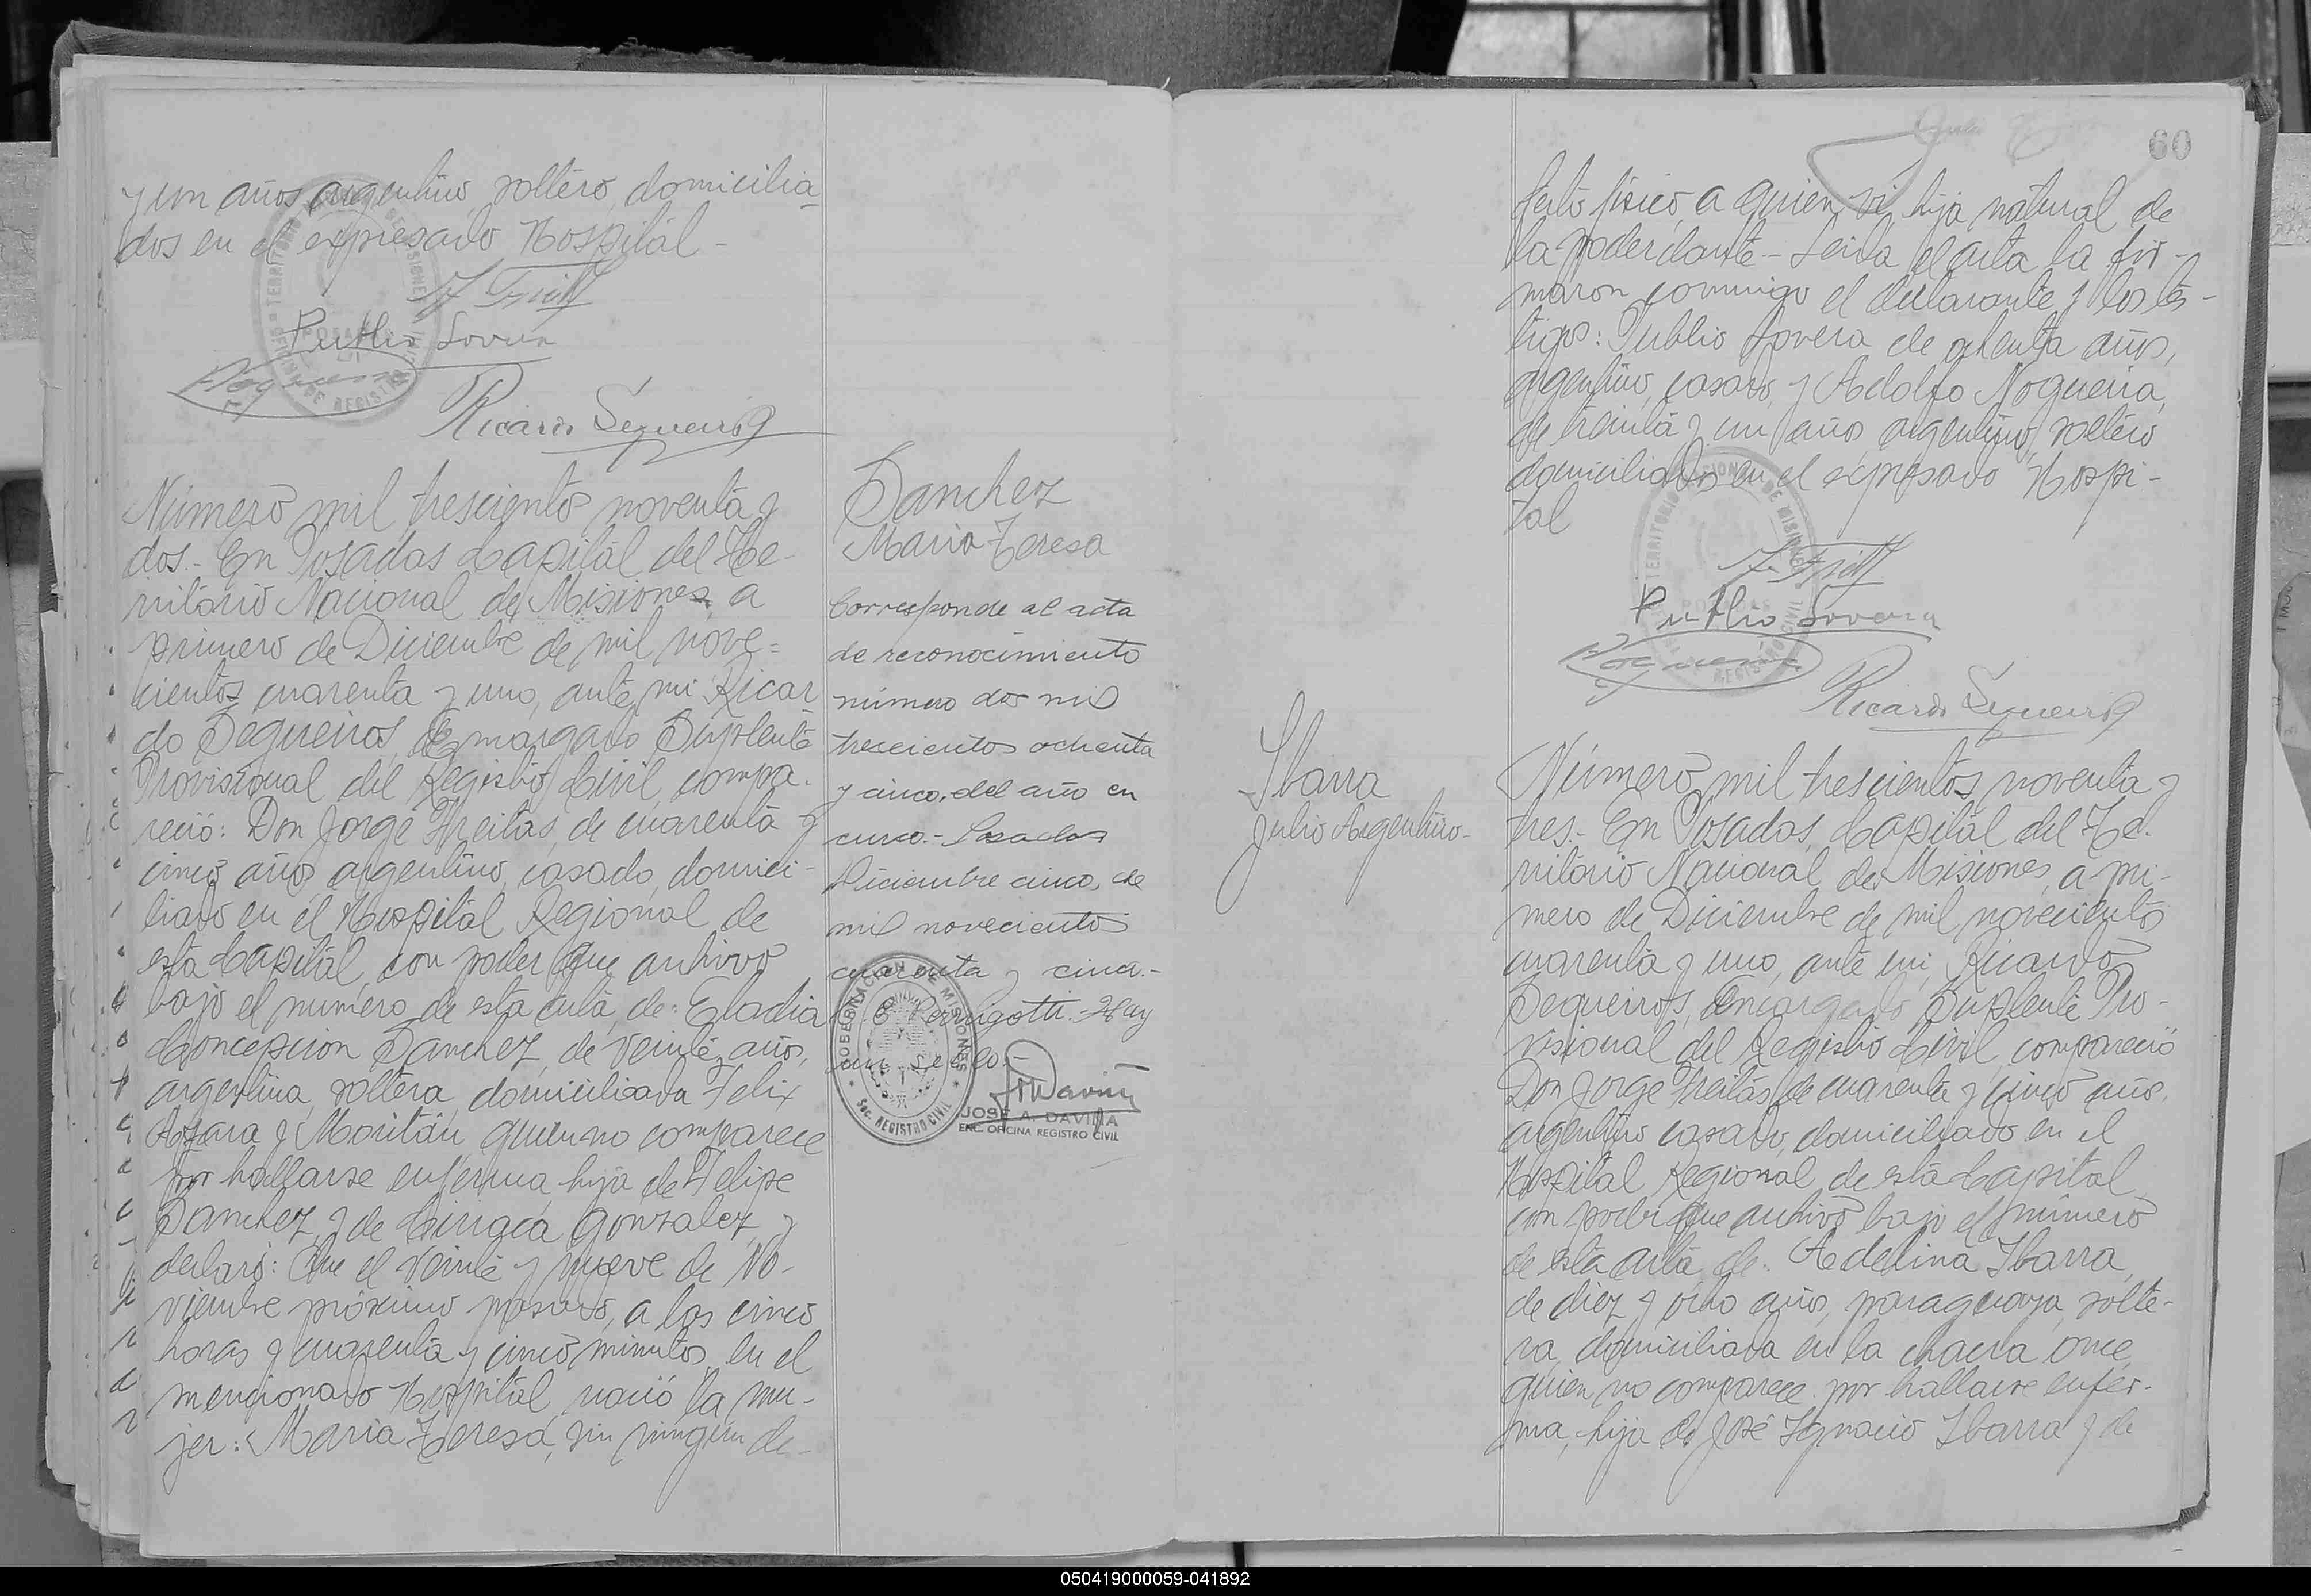 y un años argentino, soltero, domicilia-
dos en el expresado Hospital -
Publio Lovera
Ricardo Sequeiros
Número mil trescientos noventa y
dos.- En Posadas Capital del Te-
rritorio Nacional de Misiones, a
primero de Diciembre de mil nove=
cientos cuarenta y uno, ante mi Ricar
do Sequeiros, Encargado Suplente
Provisional del Registro Civil, compa-
reció: Don Jorge Freitas, de cuarenta y
cinco años, argentino, casado, domici-
liado en el Hospital Regional de
esta Capital, con poder que archivo
bajo el numero de esta acta, de: Eladia
Concepcion Sanchez, de veinte años,
argentina, soltera, domiciliada Felix
Azara y Moritán, quien no comparece
por hallarse enferma, hija de Felipe
Sanchez, y de Ciriaca Gonzalez, y
declaró: Que el veinte y nueve de No-
viembre próximo pasado, a las cinco
horas y cuarenta y cinco minutos, en el
mencionado Hospital, nació la mu-
jer: Maria Teresa, sin ningún de-
Sanchez
Maria Teresa
Corresponde al acta
de reconocimiento
número dos mil
trescientos ochenta
y cinco, del año en
curso.- Posadas
Diciembre cinco, de
mil novecientos
cuarenta y cinco.-
Hay
un sello.-
GOBERNACION DE MISIONES
SOC. REGISTRO CIVIL
JOSÉ A. DAVIÑA
ENC. OFICINA REGISTRO CIVIL
60
fecto físico, a quien vi, hija natural de
la poderdante - Leida el acta la fir-
maron conmigo el declarante y los tes-
tigos: Publio Lovera de ochenta años,
argentino, casado, y Adolfo Nogueira,
de treinta y un años, argentino, soltero
domiciliados en el expresado Hospi-
tal
Publio Lovera
Ricardo Sequeiros
Ibarra
Julio Argentino-
Número mil trescientos noventa y
tres.- En Posadas, Capital del Te-
rritorio Nacional de Misiones, a pri-
mero de Diciembre de mil novecientos
cuarenta y uno, ante mi, Ricardo
Sequeiros, Encargado Suplente Pro-
visional del Registro Civil, compareció
Don Jorge Freitas, de cuarenta y cinco años,
argentino, casado, domiciliado en el
Hospital Regional de esta Capital
con poder que archivo bajo el número
de esta acta, de: Adelina Ibarra,
de diez y ocho años, paraguaya, solte-
ra, domiciliada en la chacra once,
quien no comparece por hallarse enfer-
ma, hija de José Ignacio Ibarra y de
050419000059-041892